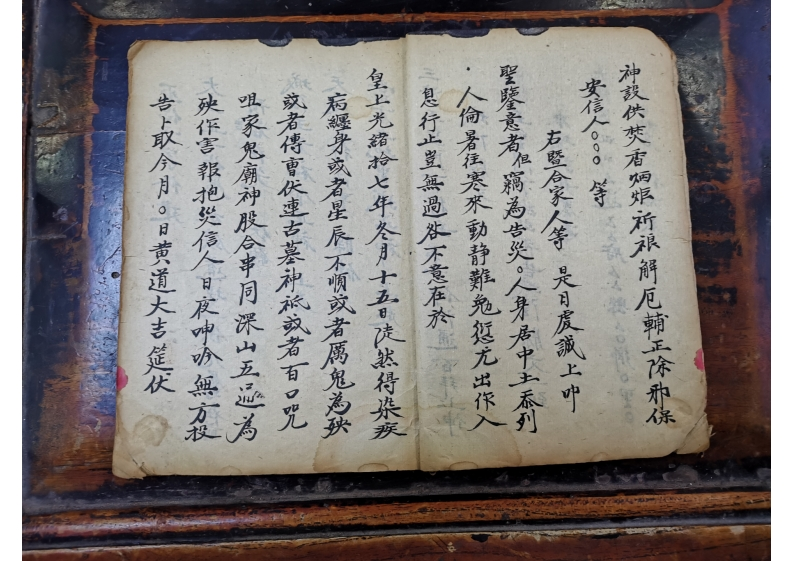 神設供焚香炳炬祈禳解厄輔正除邪保
安信人○○○等
右暨合家人等 是日虔誠上叩
聖鑒意者但竊為告災○人身居中土忝列
人倫暑往寒來動靜難免愆尤出作入
息行止豈無過咎不意在於
皇上光緒拾七年冬月十五日陡然得染疾
病纏身或者星辰不順或者厲鬼為殃
或者傳曹伏連古墓神祗或者百口咒
咀家鬼廟神股合串同深山五巡為
殃作害報抱災信人日夜呻吟無方投
告卜取今月○日黃道大吉筵伏